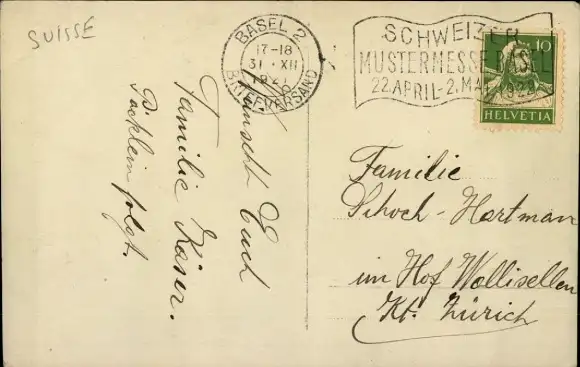 SUISSE
BASEL 2
17-18
31·XII
1921
BRIEFVERSAND
SCHWEIZER
MUSTERMESSE BASEL
22.APRIL-2.MAI 1922
10
HELVETIA
wünscht Euch
Familie Kaiser.
Päcklein folgt.
Familie
Schoch-Hartman
im Hof Wallisellen
Kt. Zürich